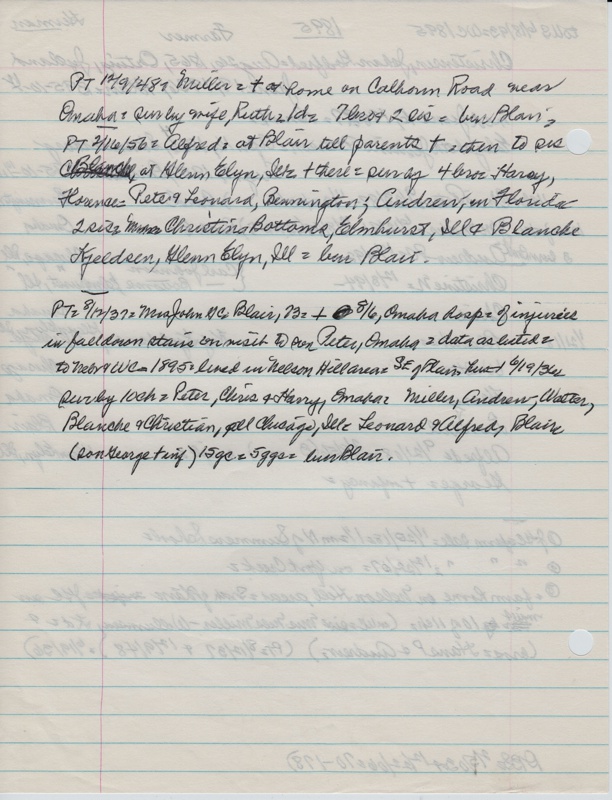 PT 12/9/48 = Miller = + at home on Calhoun Road near
Omaha = sur by wife, Ruth = 1d = 7 bro + 2 sis = bur Blair,
PT 2/16/56 = Alfred = at Blair till parents + = then to sis
Blanche, at Glenn Elyn, Ill = + there = sur by 4 bro = Harry,
Florence = Peter & Leonard, Bennington; Andrew, in Florida
2 sis = Christine Bottoms, Elmhurst, Ill & Blanche
Kjeldsen, Glenn Elyn, Ill = bur Blair.
PT = 8/12/37 = Mrs John HC = Blair, 73 = + 8/6, Omaha hosp = of injuries
in fall down stairs on visit to son Peter, Omaha = data as listed =
to Nebr & WC = 1895 = lived in Nelson Hill area = SE of Blair, hus + 6/19/36
sur by 10 ch = Peter, Chris & Harry, Omaha = Miller, Andrew, Walter,
Blanche & Christian, all Chicago, Ill = Leonard & Alfred, Blair
(son George + inf) 15 gc = 5 ggc = bur Blair.